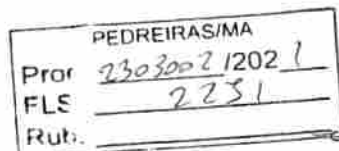 PEDREIRAS/MA
Pror 2303002/2021
FLS 2251
Rub.